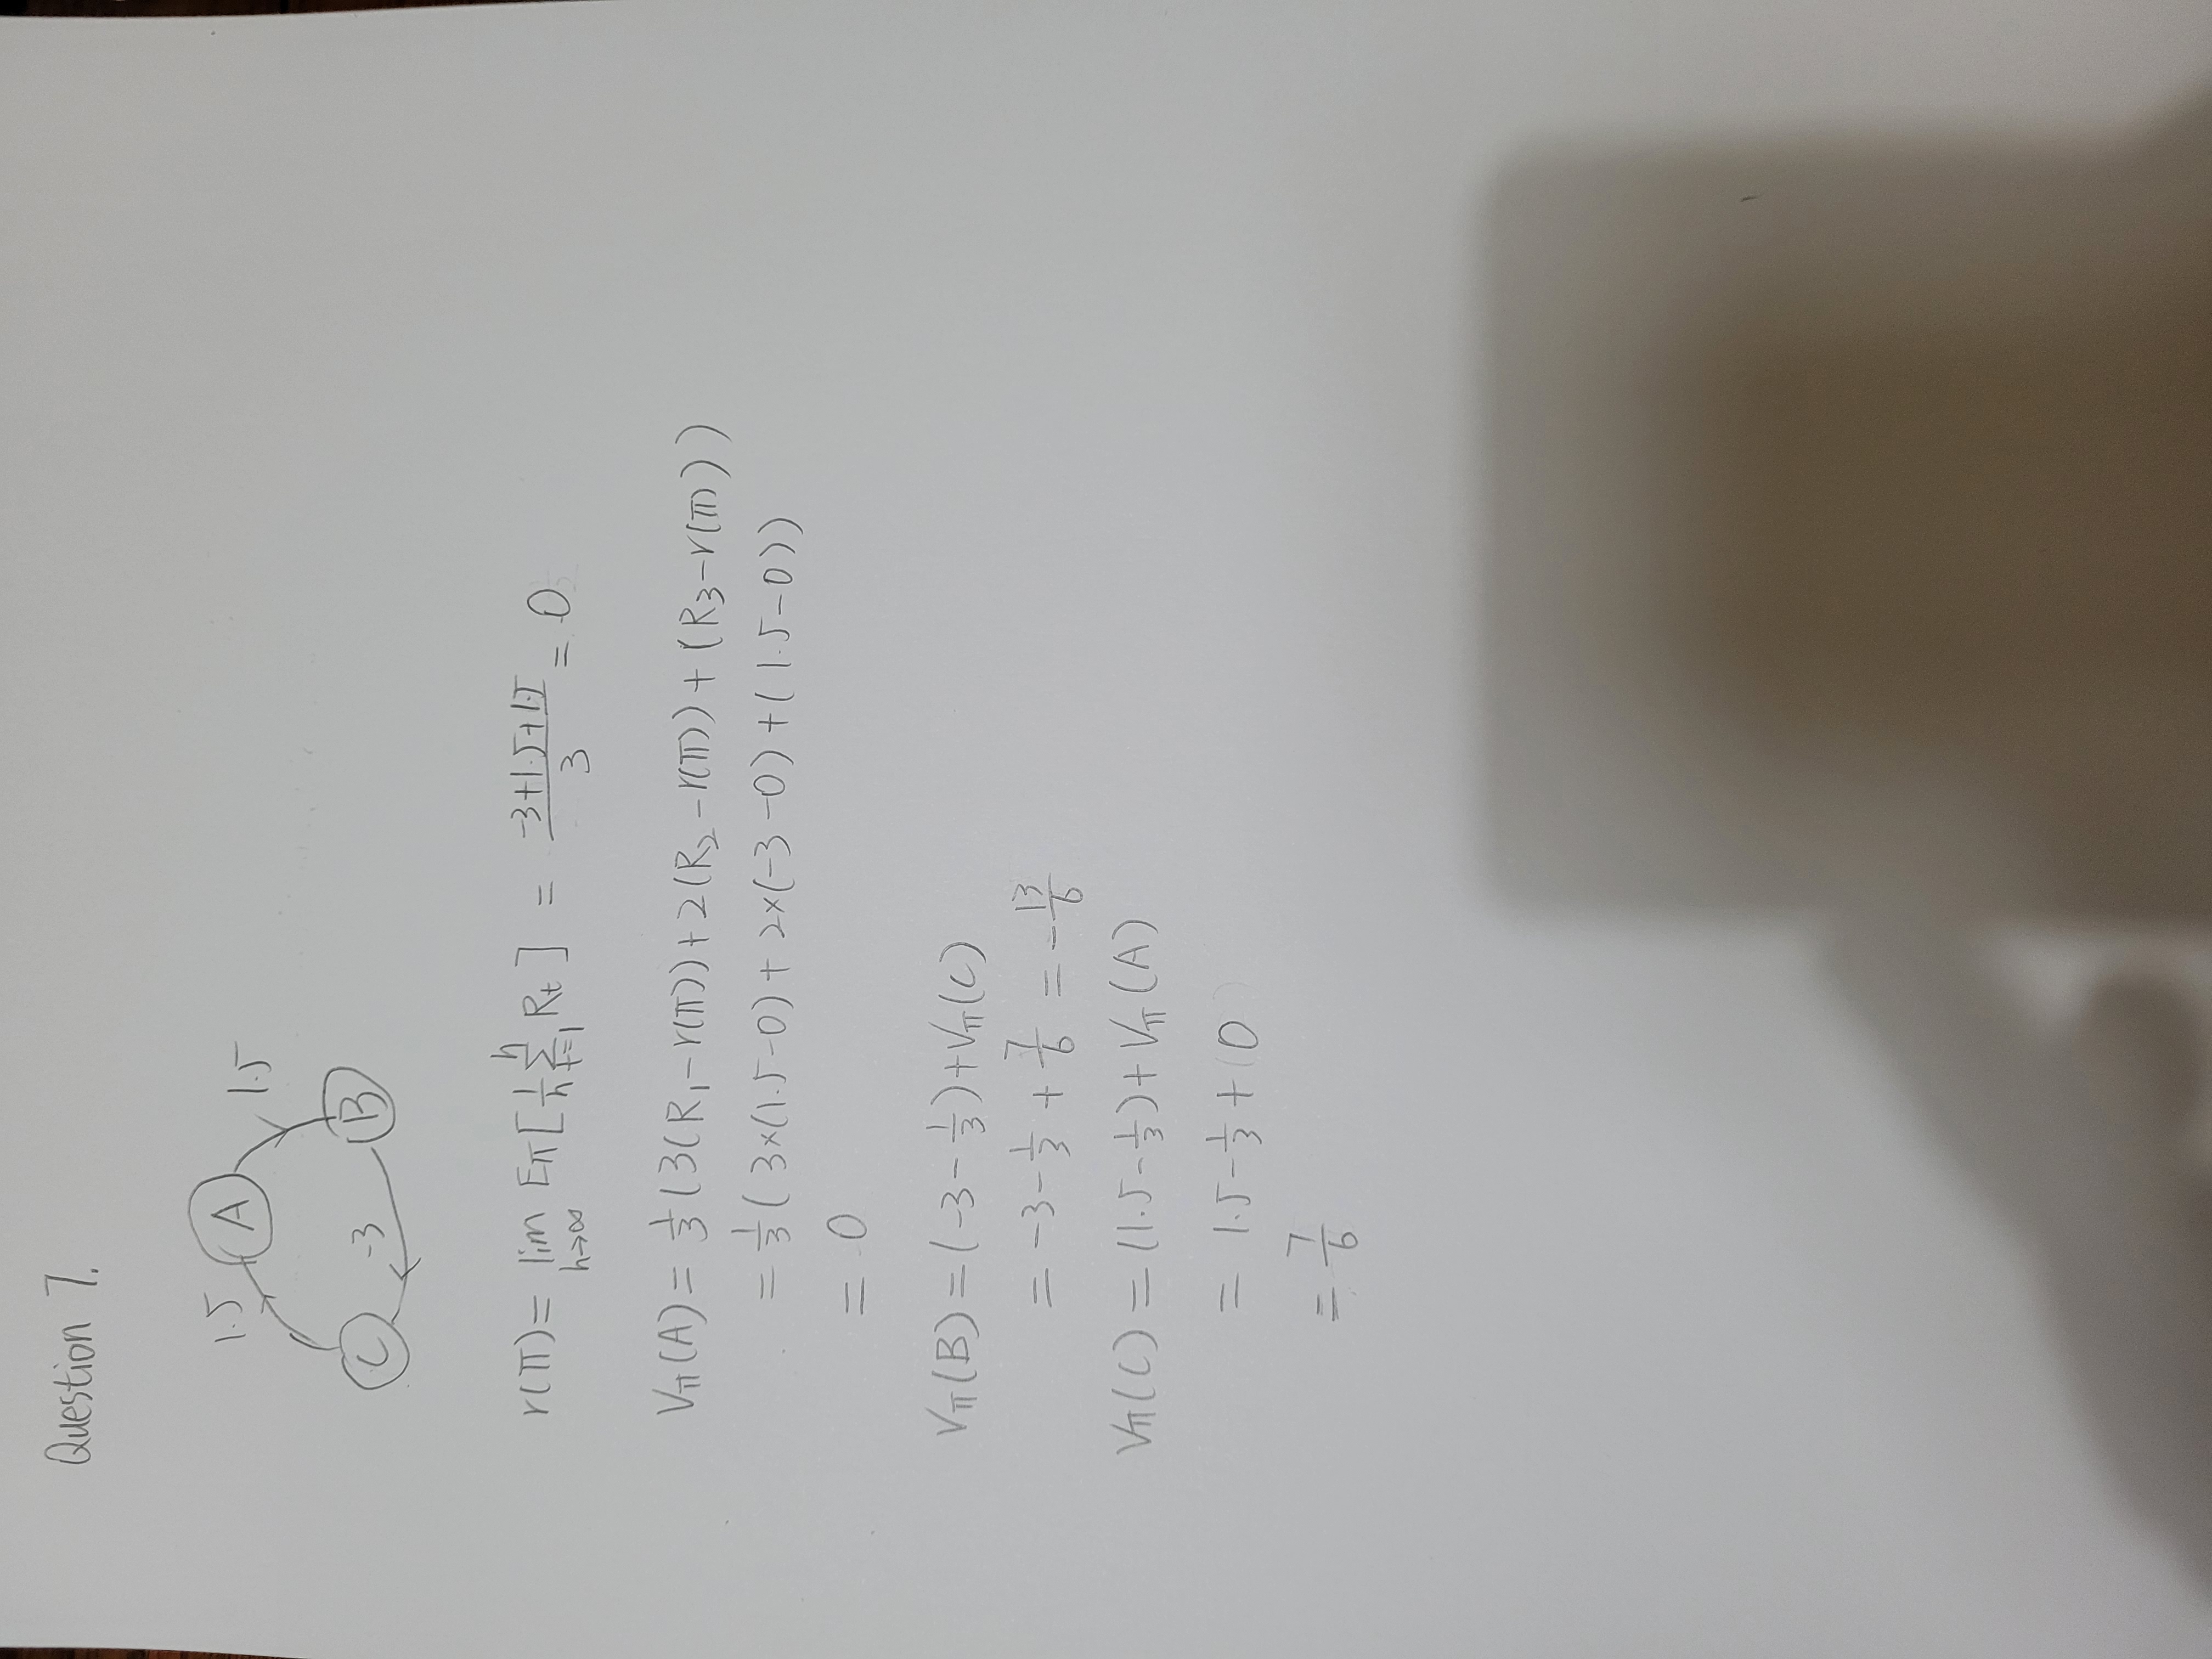 Question 7.
1.5 A 1.5
C -3 B
r(π) = lim h→∞ Eπ[1/h Σ t=1 h Rt] = (-3+1.5+1.5)/3 = 0
Vπ(A) = 1/3 (3(R1-r(π)) + 2(R2-r(π)) + (R3-r(π)))
= 1/3 (3×(1.5-0) + 2×(-3-0) + (1.5-0))
= 0
Vπ(B) = (-3-1/3)+Vπ(C)
= -3-1/3 + 7/6 = -13/6
Vπ(C) = (1.5-1/3)+Vπ(A)
= 1.5-1/3 + 0
= 7/6